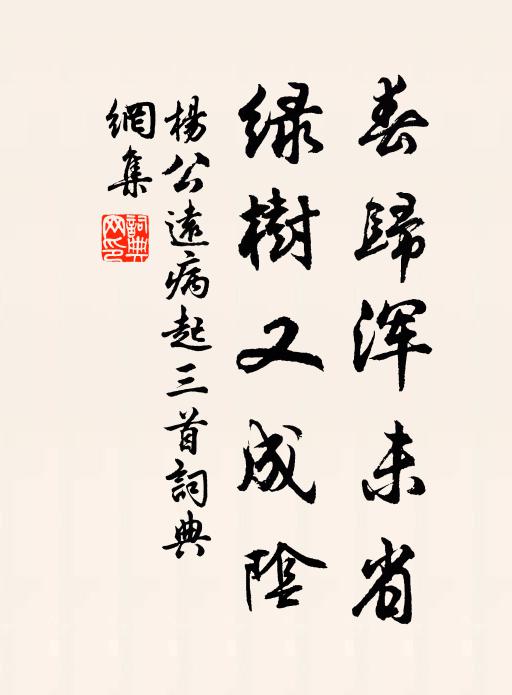 春歸浑未省
绿樹又成陰
楊公遠病起三首詞典
網集
詞典网印